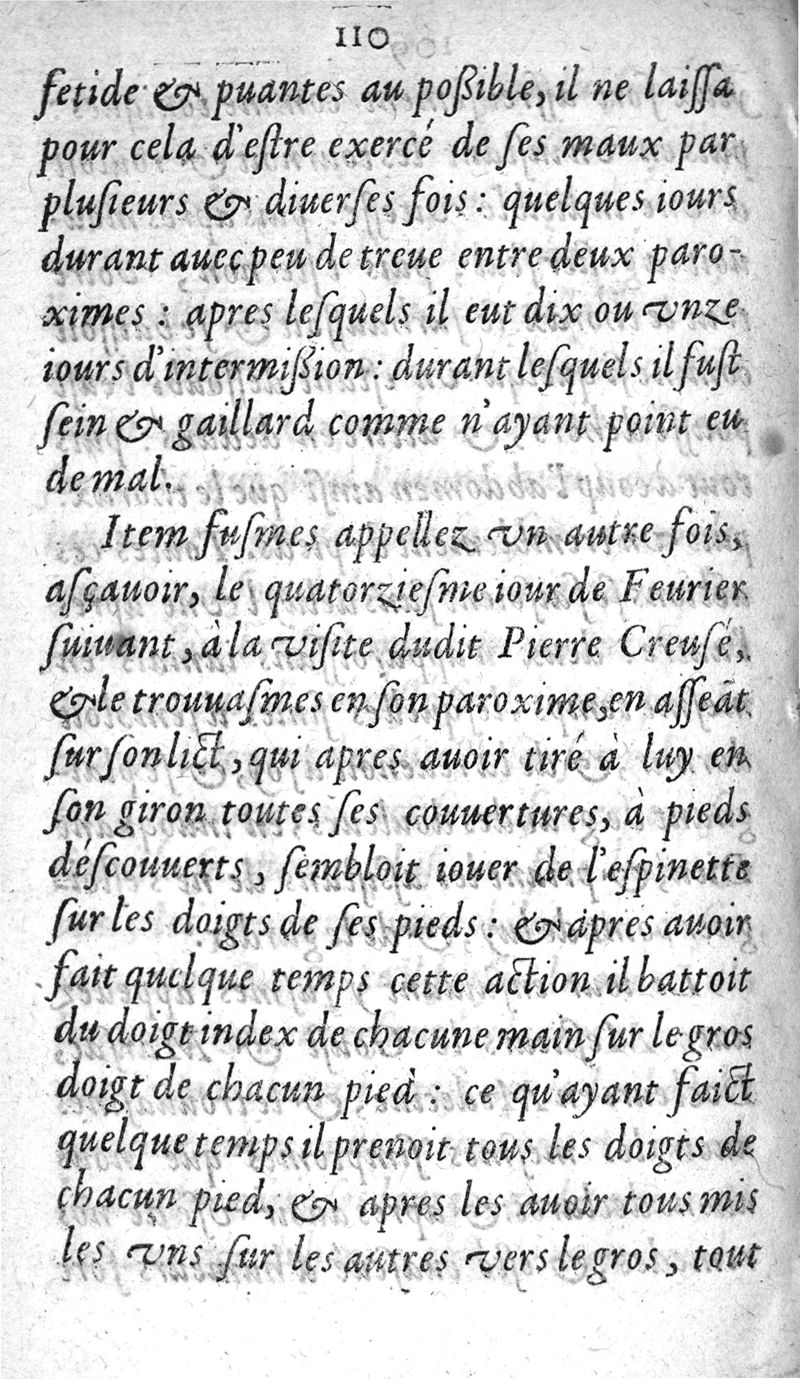 110
fetide & puantes au poßible, il ne laiſſa
pour cela d'eſtre exercé de ſes maux par
pluſieurs & diuerſes fois : quelques iours
durant auec peu de treue entre deux paro-
ximes : apres leſquels il eut dix ou vnze
iours d'intermißion : durant leſquels il fuſt
ſein & gaillard comme n'ayant point eu
de mal.
Item fuſmes appellez vn autre fois,
aſçauoir, le quatorzieſme iour de Feurier
ſuiuant, à la viſite dudit Pierre Creuſé,
& le trouuaſmes en ſon paroxime, en aſſeāt
ſur ſon lict, qui apres auoir tiré à luy en
ſon giron toutes ſes couuertures, à pieds
déſcouuerts, ſembloit iouer de l'eſpinette
ſur les doigts de ſes pieds : & apres auoir
fait quelque temps cette action il battoit
du doigt index de chacune main ſur le gros
doigt de chacun pied : ce qu'ayant faict
quelque temps il prenoit tous les doigts de
chacun pied, & apres les auoir tous mis
les vns ſur les autres vers le gros, tout